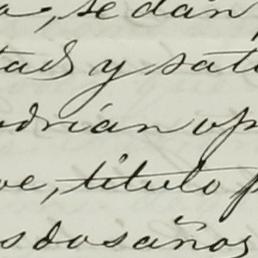 a, se dán
tad y sati
odrián op
ve, título p
s dos años